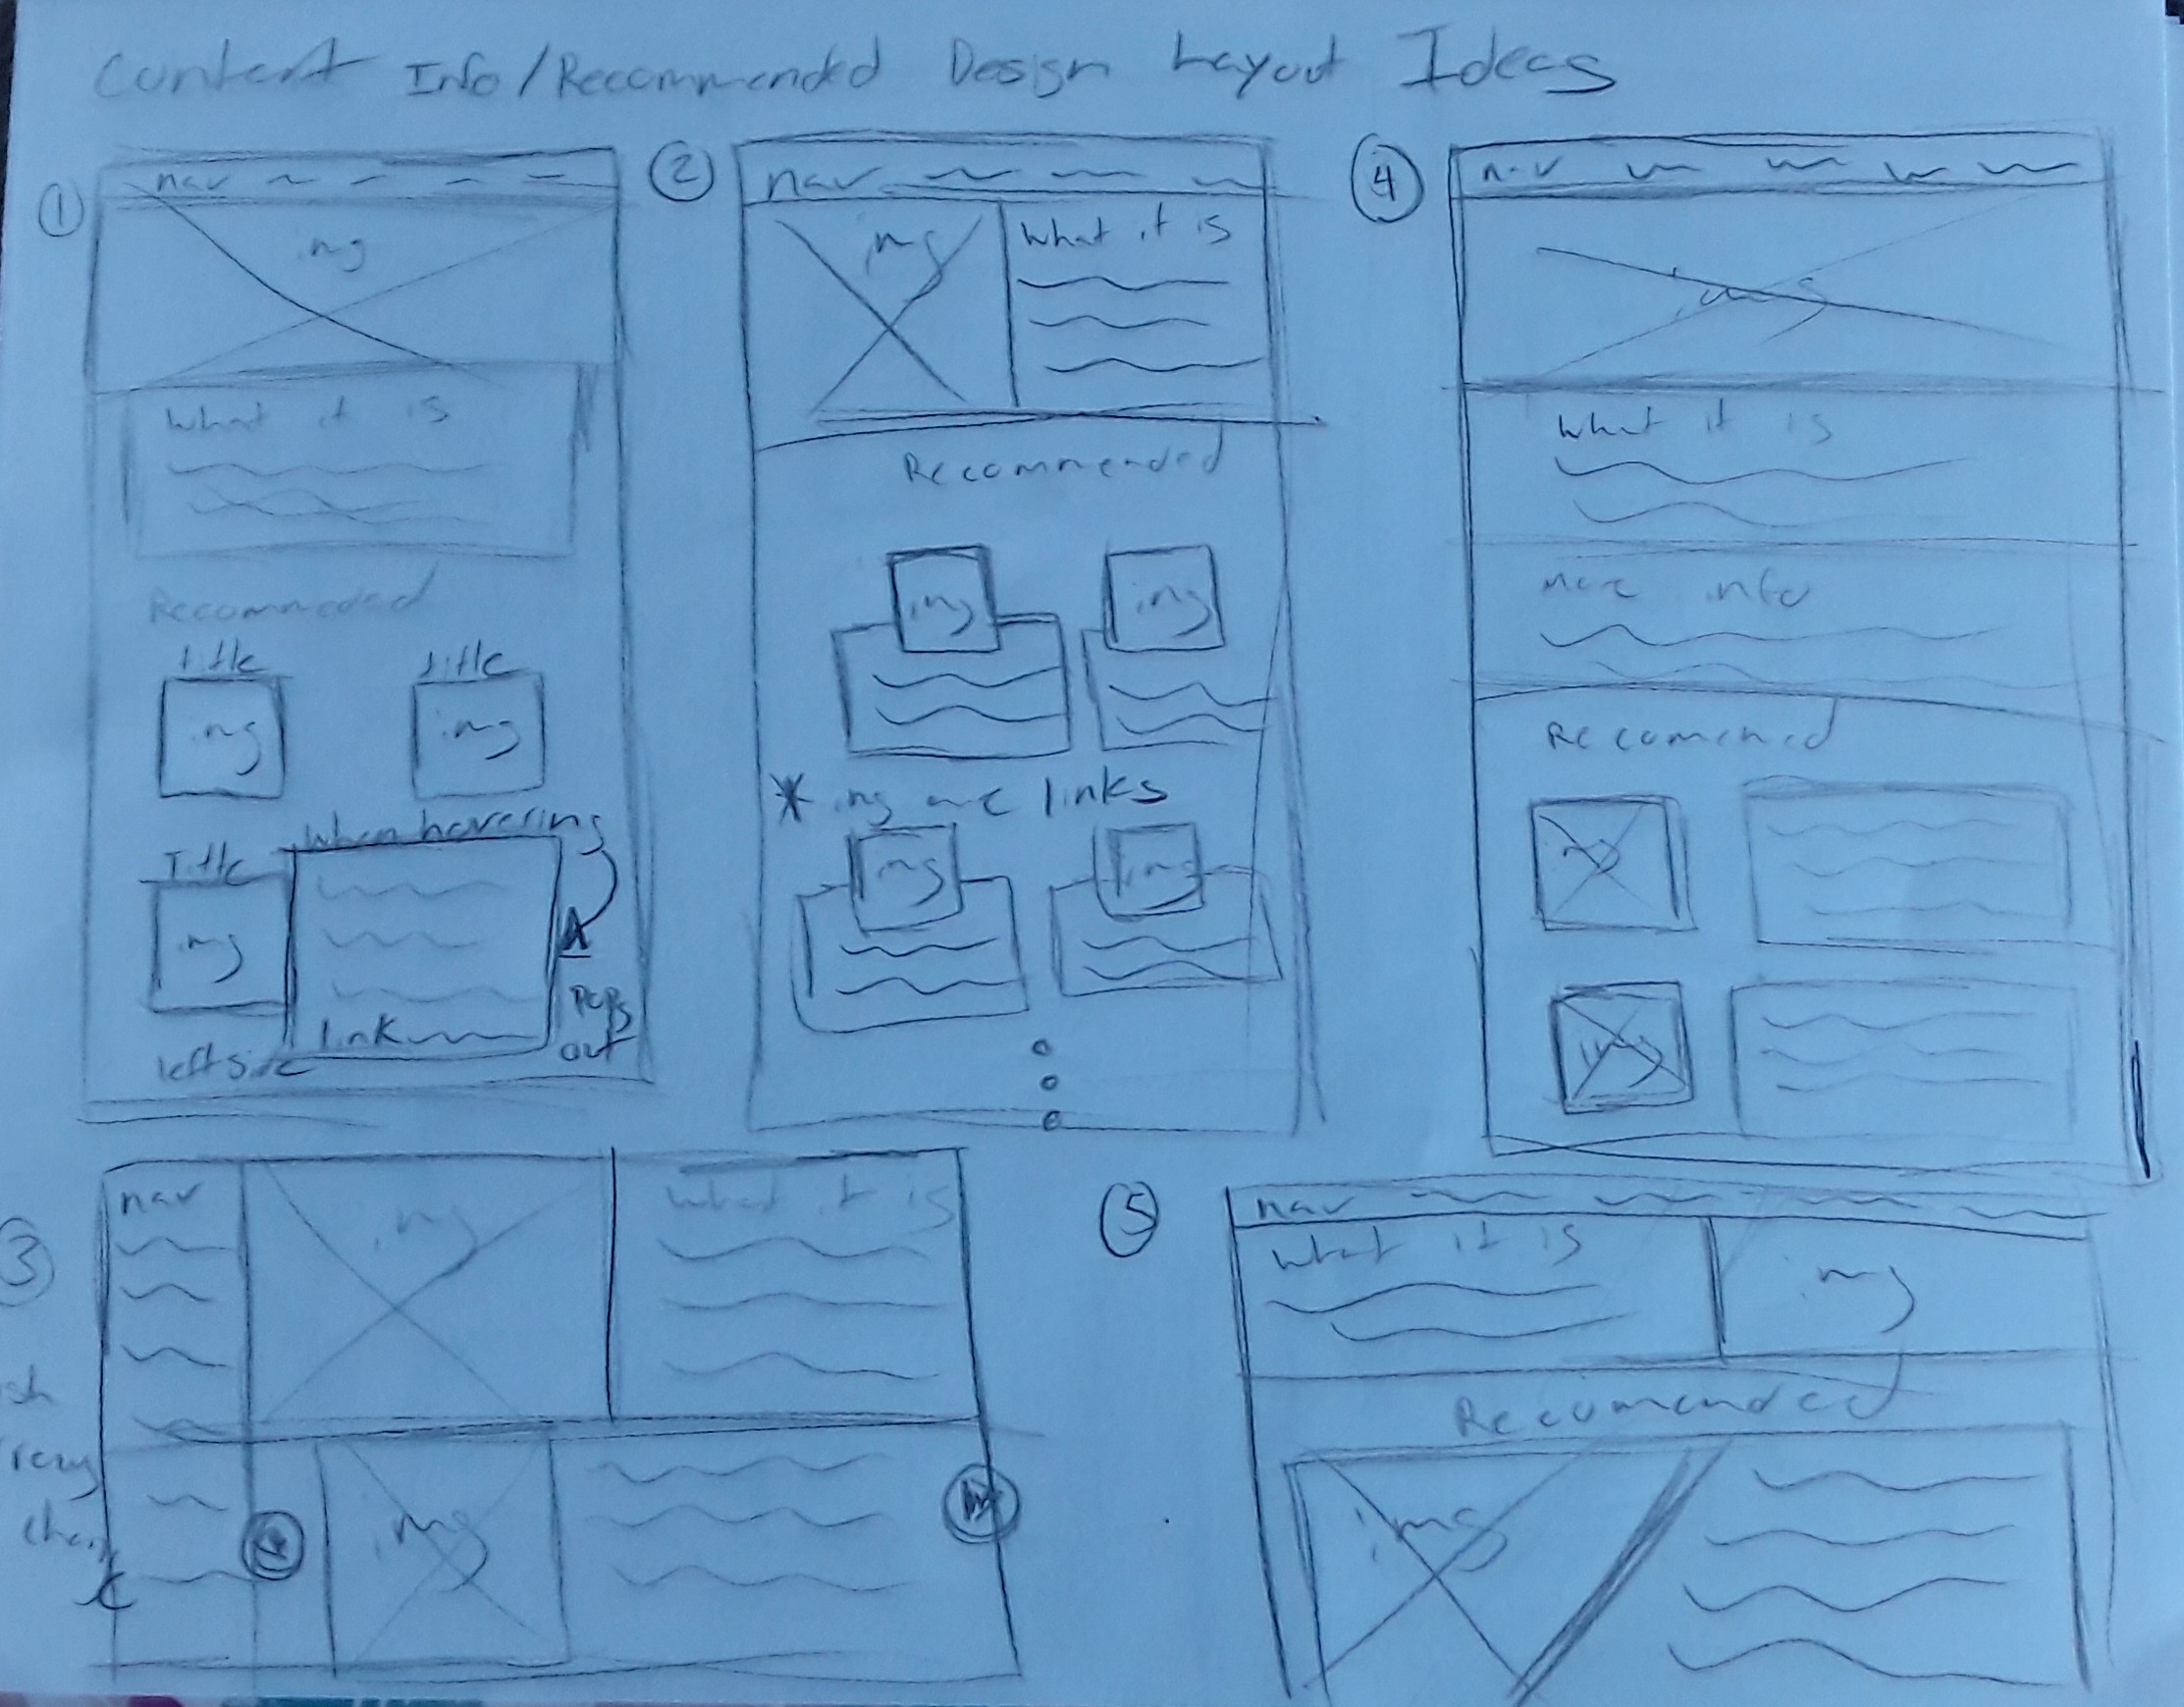 Content Info/Recommended Design Layout Ideas
①
nav
img
What it is
Recommeded
title
title
img
img
When hovering
Title
img
link
Pops
out
left side
②
nav
img
What it is
Recommended
img
img
* img are links
img
img
④
nav
img
What it is
More info
Recomened
img
img
3
nav
img
What it is
img
⑤
nav
What it is
img
Recomended
img